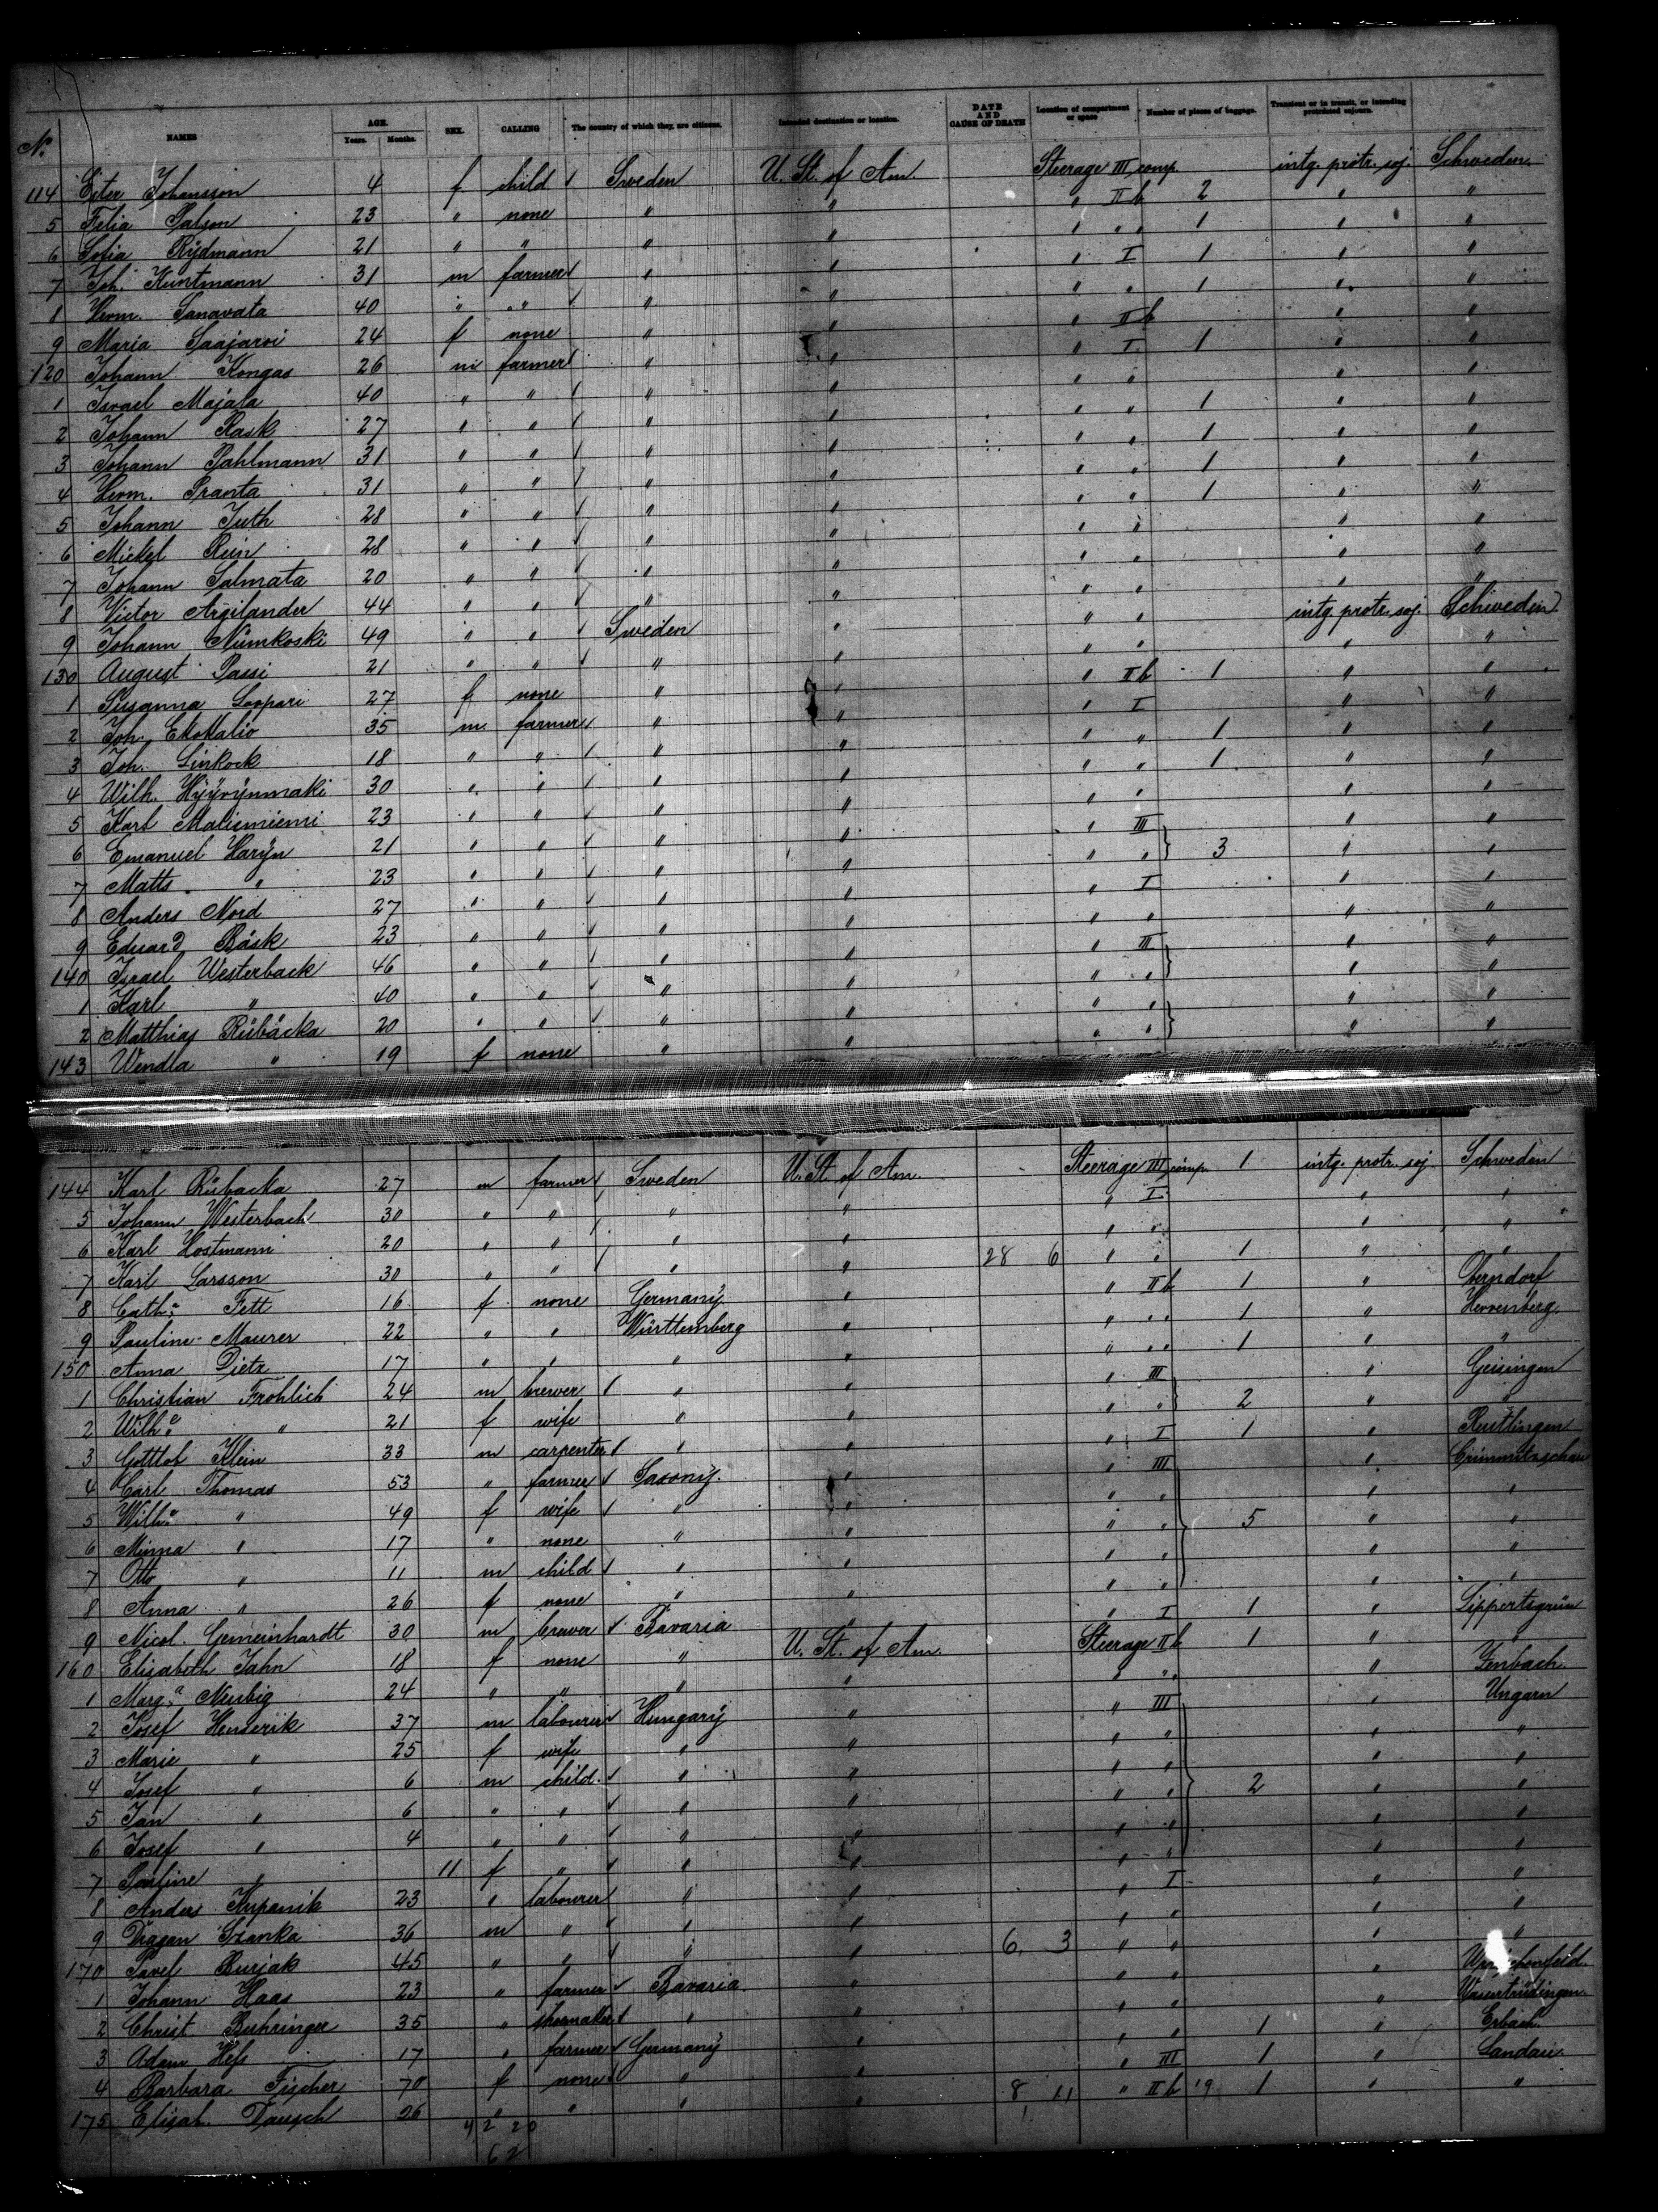 No. NAMES AGE. Years. Months. SEX. CALLING The country of which they, are citizens. Intended destination or location. DATE AND CAUSE OF DEATH Location of compartment or space Number of pieces of baggage. Transient or in transit, or intending protracted sojourn.
114 Ester Johansson 4 f child Sweden U. St. of Am. Steerage III comp. intg. protr. soj. Schweden
5 Filia Palson 23 " none " " " II b 2 " "
6 Sofia Rydmann 21 " " " " " " " 1 " "
7 Joh. Kuntmann 31 m farmer " " " I 1 " "
8 Herm. Sanavata 40 " " " " " " 1 " "
9 Maria Saajarvi 24 f none " " " II b " "
120 Johann Kongas 26 m farmer " " " I 1 " "
1 Israel Majala 40 " " " " " " " "
2 Johann Rask 27 " " " " " " 1 " "
3 Johann Pahlmann 31 " " " " " " 1 " "
4 Herm. Pranta 31 " " " " " " 1 " "
5 Johann Juth 28 " " " " " " 1 " "
6 Mickel Rein 28 " " " " " " " "
7 Johann Salmata 20 " " " " " " " "
8 Victor Argilander 44 " " " " " " " "
9 Johann Niimkoski 49 " " Sweden " " " intg. protr. soj. Schweden
130 August Passi 21 " " " " " " " "
1 Sissanna Loopari 27 f none " " " II b 1 " "
2 Joh. Ekokalio 35 m farmer " " " I " "
3 Joh. Linkock 18 " " " " " " 1 " "
4 Wilh. Hyyrynmaki 30 " " " " " " 1 " "
5 Karl Maliemiemi 23 " " " " " " " "
6 Emanuel Haryn 21 " " " " " III " "
7 Matts " 23 " " " " " " 3 " "
8 Anders Nord 27 " " " " " I " "
9 Eduard Bäsk 23 " " " " " " " "
140 Israel Westerback 46 " " " " " III " "
1 Karl " 40 " " " " " " " "
2 Matthias Rübäcka 20 " " " " " " " "
143 Wendla " 19 f none " " " " " "
144 Karl Rübacka 27 m farmer Sweden U. St. of Am. Steerage III comp. 1 intg. protr. soj. Schweden
5 Johann Westerbach 30 " " " " " I " "
6 Karl Hostmann 20 " " " " " " " "
7 Karl Larsson 30 " " " " 28 6 " " 1 " "
8 Catha. Fett 16 f none Germany " " II b 1 " Oberndorf
9 Pauline Maurer 22 " " Württemberg " " " " 1 " Herrenberg
150 Anna Dietz 17 " " " " " " " 1 " "
1 Christian Frohlich 24 m brewer " " " III " Geisingen
2 Wilhe. " 21 f wife " " " " 2 " "
3 Gottlob Klein 33 m carpenter " " " I 1 " Reutlingen
4 Carl Thomas 53 " farmer Saxony. " " III " Crimmitzschau
5 Wilhe. " 49 f wife " " " " " "
6 Minna " 17 " none " " " " 5 " "
7 Otto " 11 m child " " " " " "
8 Anna " 26 f none " " " " " "
9 Nicol. Gemeinhardt 30 m brewer Bavaria " " I 1 " Lippertsgrün
160 Elisabeth Jahn 18 f none " U. St. of Am. Steerage II b 1 " "
1 Marga. Neubig 24 " " " " " " " Zenbach
2 Josef Henserik 37 m labourer Hungary " " III " Ungarn
3 Marie " 25 f wife " " " " " "
4 Josef " 6 m child. " " " " " "
5 Jan " 6 " " " " " " 2 " "
6 Josef " 4 " " " " " " " "
7 Pauline " 11 f " " " " " " "
8 Anders Kupanik 23 " labourer " " " I " "
9 Dragan Szanka 36 m " " " " " " "
170 Pavel Burjak 45 " " " " 6. 3 " " " "
1 Johann Haas 23 " farmer Bavaria " " " "
2 Christ Buhringer 35 " shoemaker " " " " " Wasertrüdingen
3 Adam Heß 17 " farmer Germany " " " 1 " Erbach
4 Barbara Fischer 70 f none " " " III 1 " Landau
175 Elisab. Dausch 26 " " " " 8 11 " II b 19 1 " "
4 2 20
62